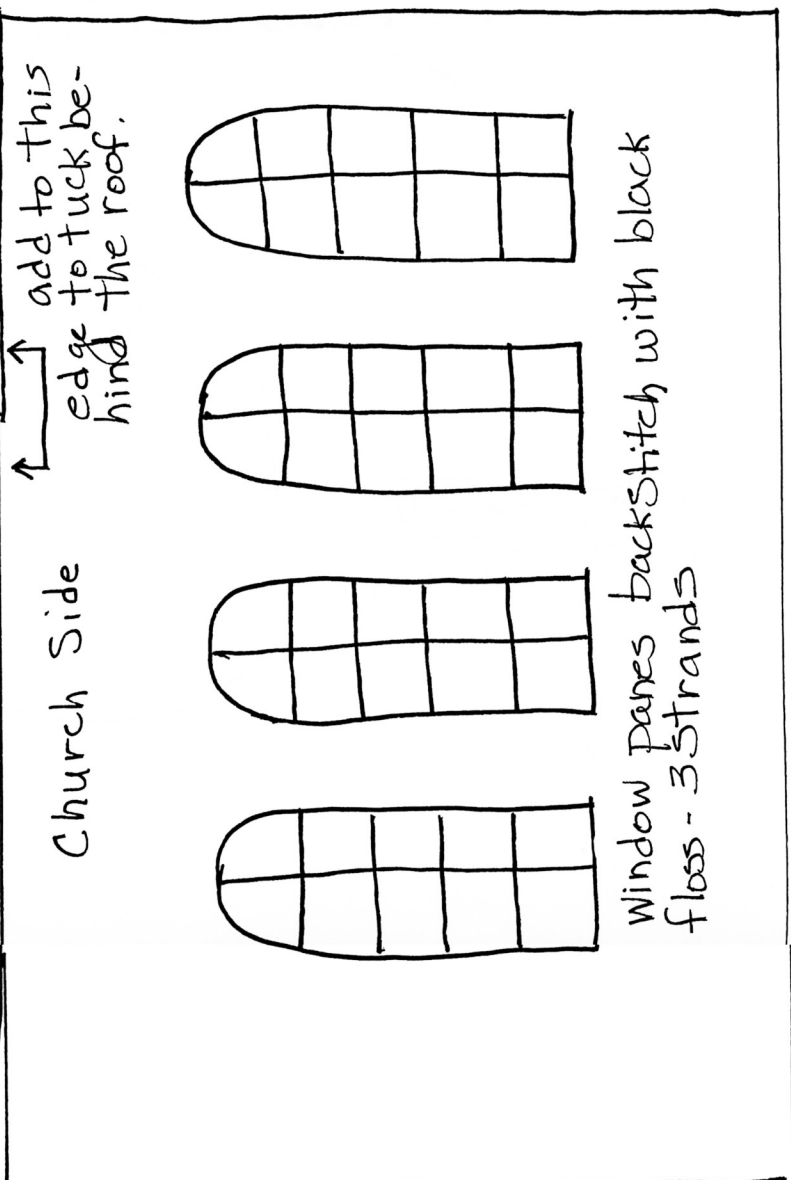 Church Side
add to this
edge to tuck be-
hind the roof.
Window panes backstitch with black
floss - 3 strands